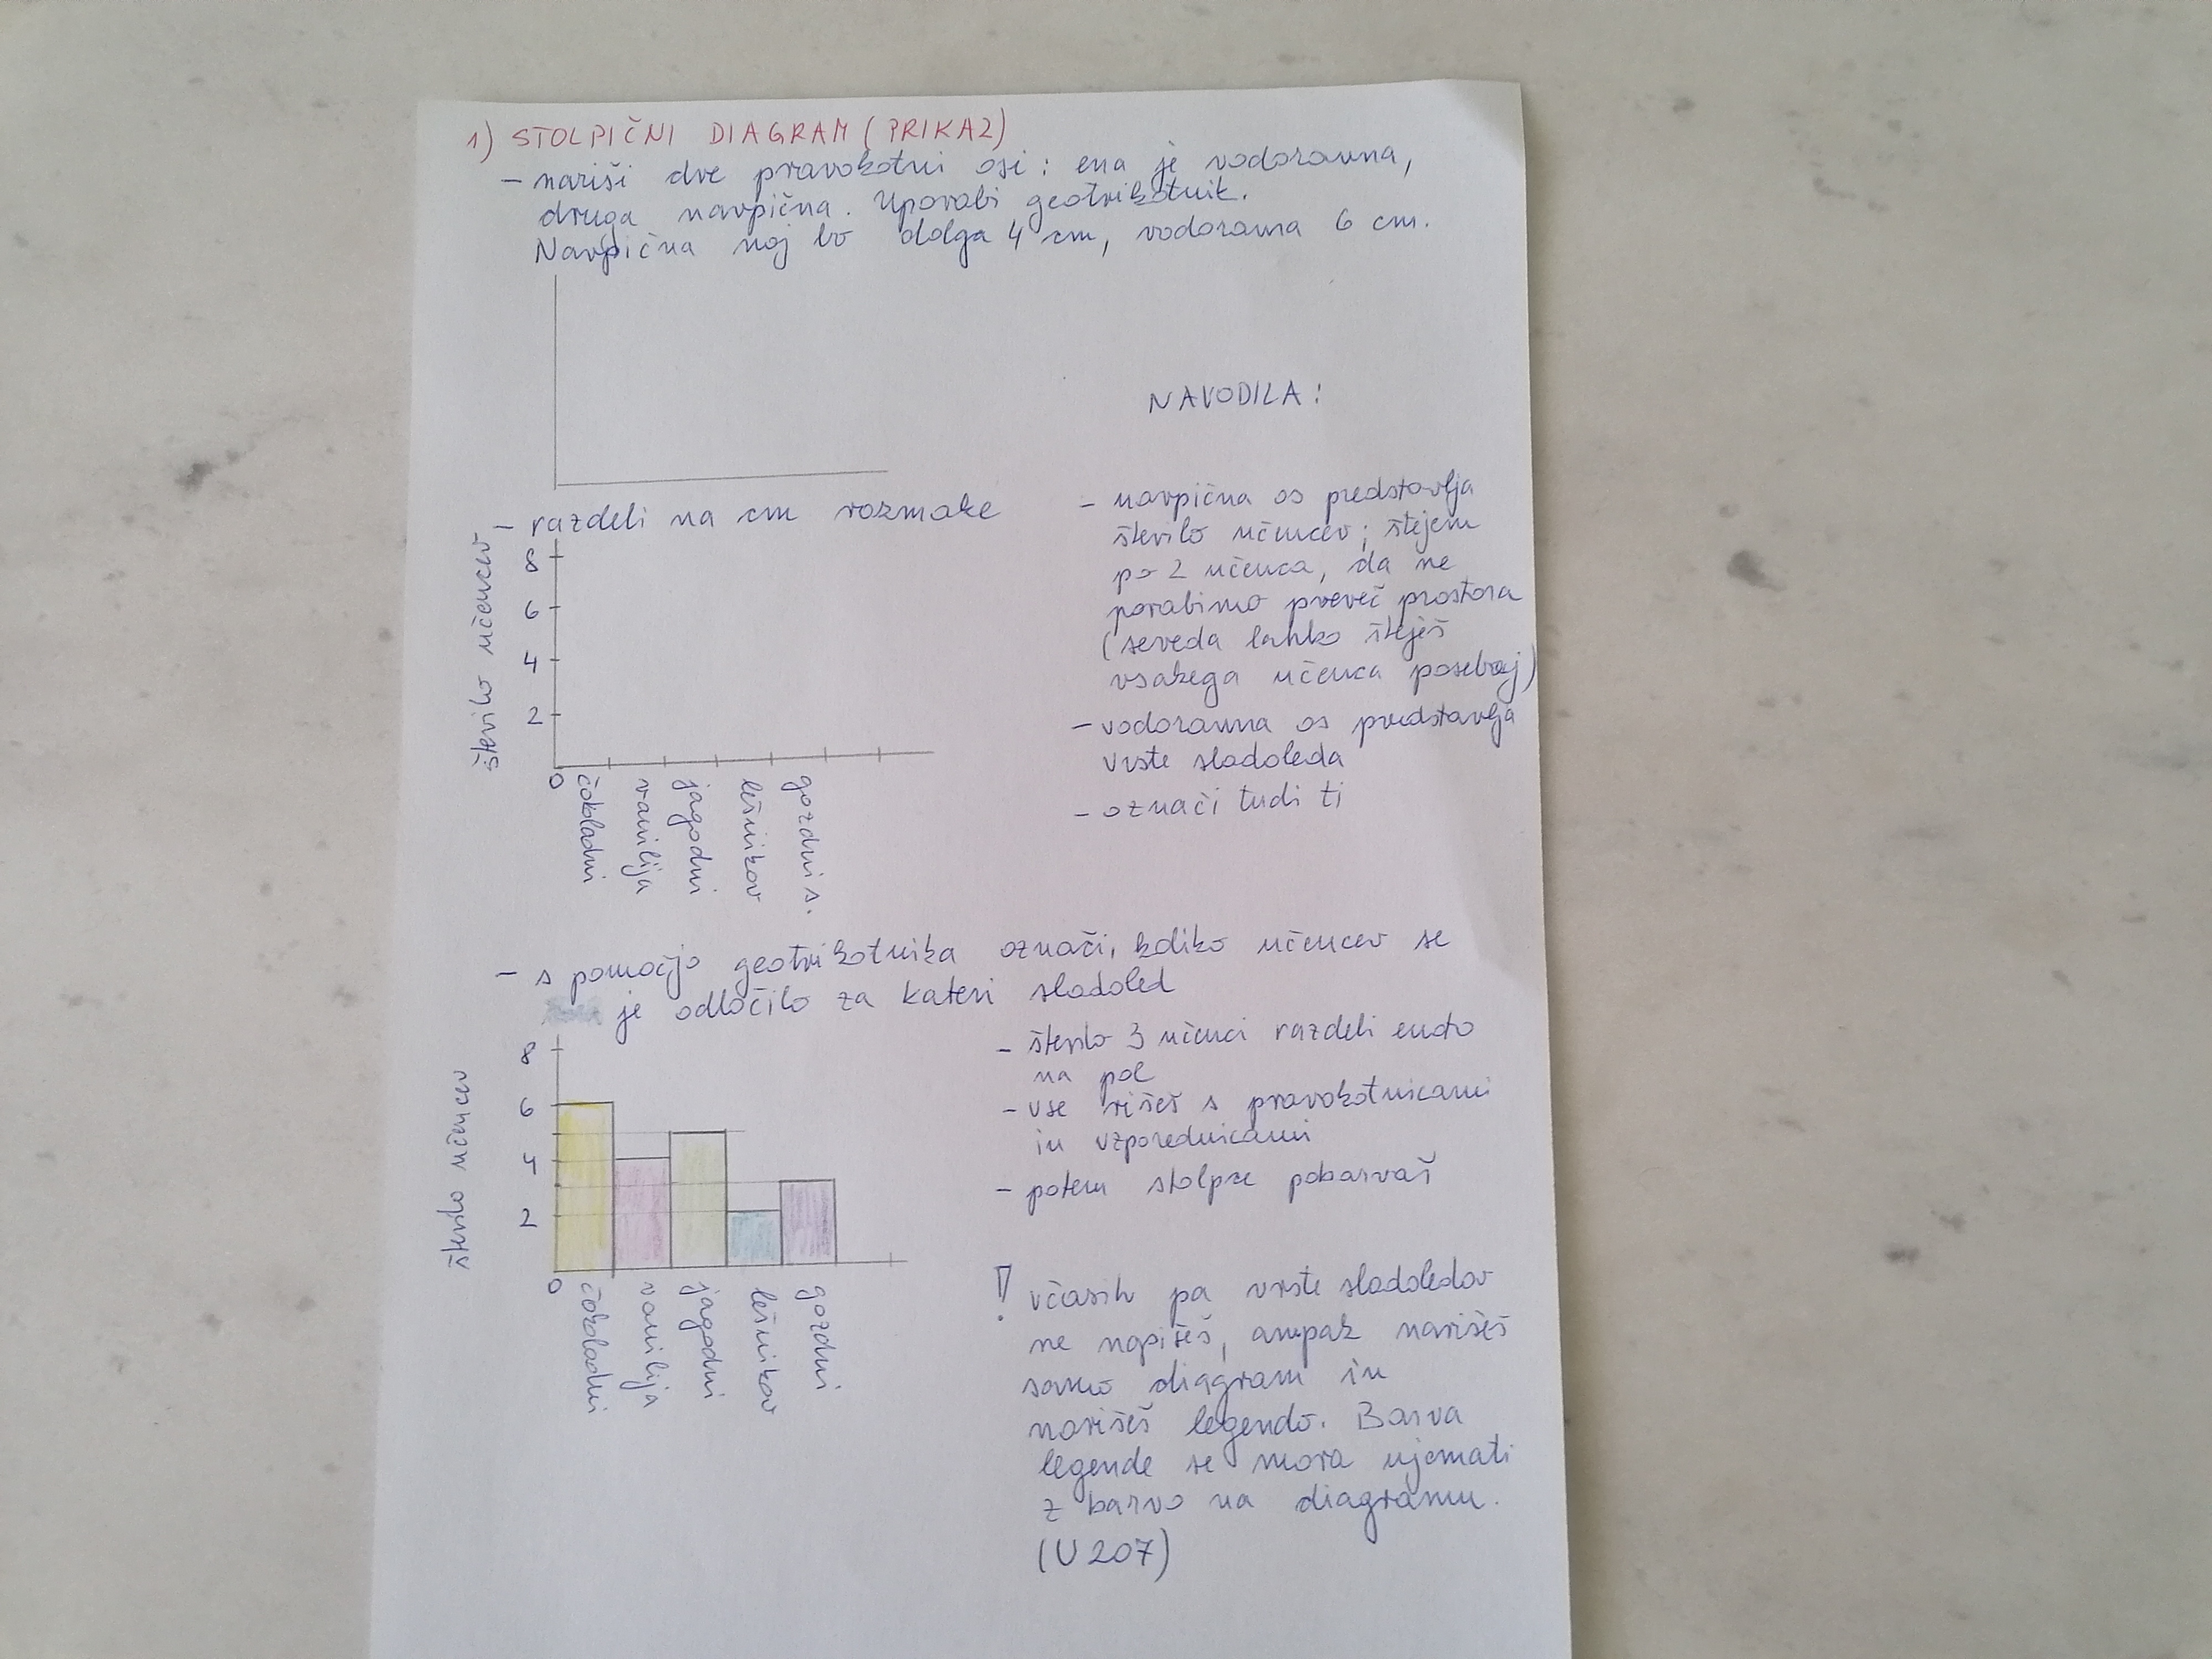 1) STOLPIČNI DIAGRAM (PRIKAZ)
- nariši dve pravokotni osi: ena je vodoravna,
druga navpična. Uporabi geotrikotnik.
Navpična naj bo dolga 4 cm, vodoravna 6 cm.
- razdeli na cm razmake
število učencev
8
6
4
2
0
čokoladni
vanilija
jagodni
lešnikov
gozdni s.
NAVODILA:
- navpična os predstavlja
število učencev; štejem
po 2 učenca, da ne
porabimo preveč prostora
(seveda lahko šteješ
vsakega učenca posebej)
- vodoravna os predstavlja
vrste sladoleda
- označi tudi ti
- s pomočjo geotrikotnika označi, koliko učencev se
je odločilo za kateri sladoled
število učencev
8
6
4
2
0
čokoladni
vanilija
jagodni
lešnikov
gozdni
- število 3 učenci razdeli enoto
na pol
- vse rišeš s pravokotnicami
in vzporednicami
- potem stolpce pobarvaš
! včasih pa vrste sladoledov
ne napišeš, ampak narišeš
samo diagram in
narišeš legendo. Barva
legende se mora ujemati
z barvo na diagramu.
(U 207)